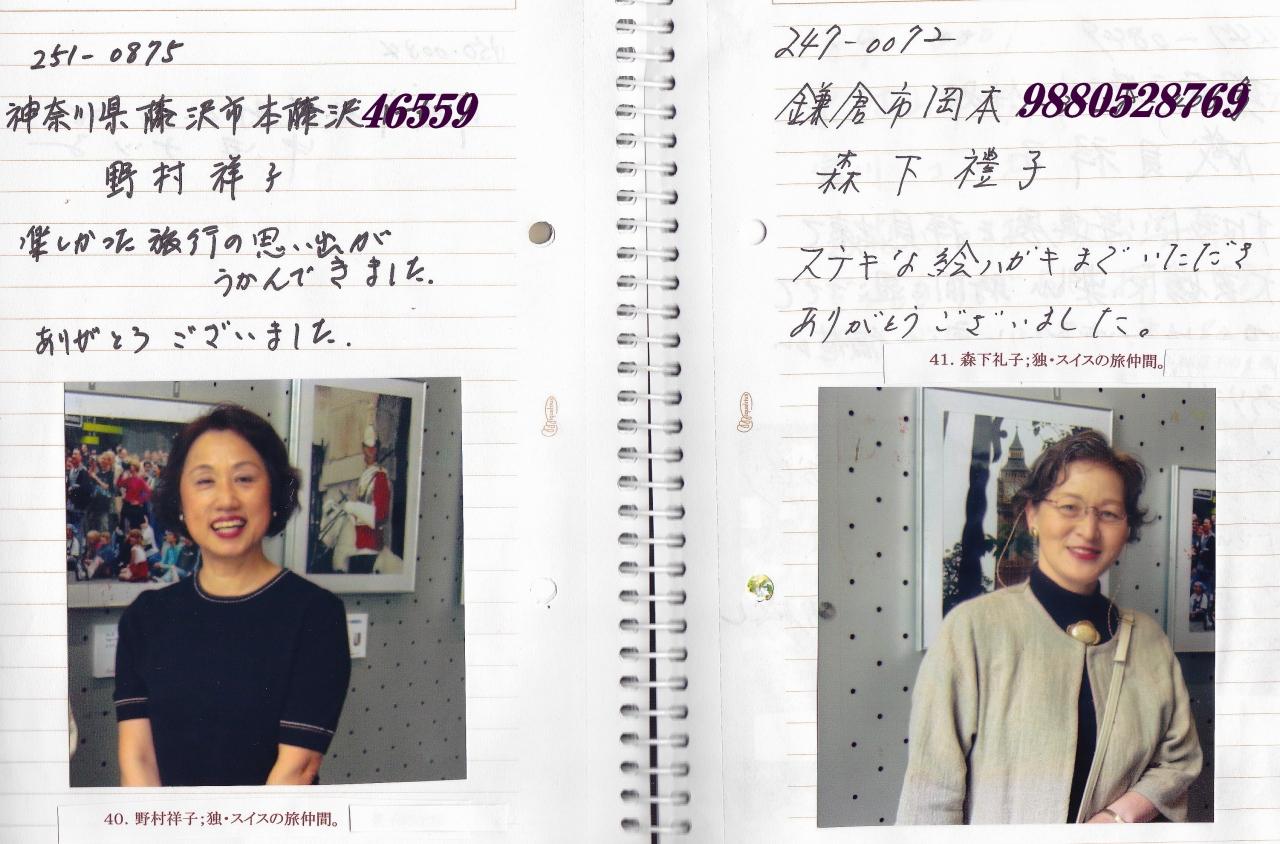 251-0875
神奈川県藤沢市本藤沢46559
野村祥子
楽しかった旅行の思い出が
うかんできました.
ありがとうございました.
40. 野村祥子;独・スイスの旅仲間。
247-0072
鎌倉市岡本 9880528769
森下禮子
ステキな絵ハガキまでいただき
ありがとうございました。
41. 森下礼子;独・スイスの旅仲間。